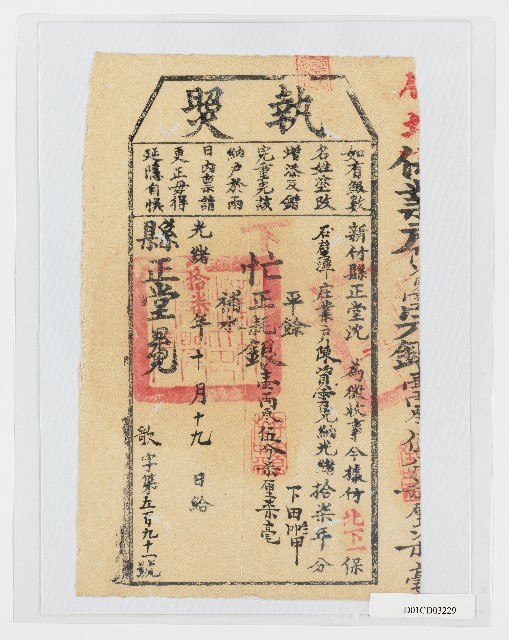 執照
如有銀數
名姓塗改
增添及錯
完重完該
納戶於兩
日內稟請
更正毋得
延隱自悞
新竹縣正堂沈 為徵收事今據竹北下一保
庄業戶陳資雲完納光緒拾柒年分
平餘
忙正耗銀壹兩零伍分柒厘柒毫
補水
下田
光緒拾柒年十月十九日給
縣正堂
字第五百九十一號
D01CD03229